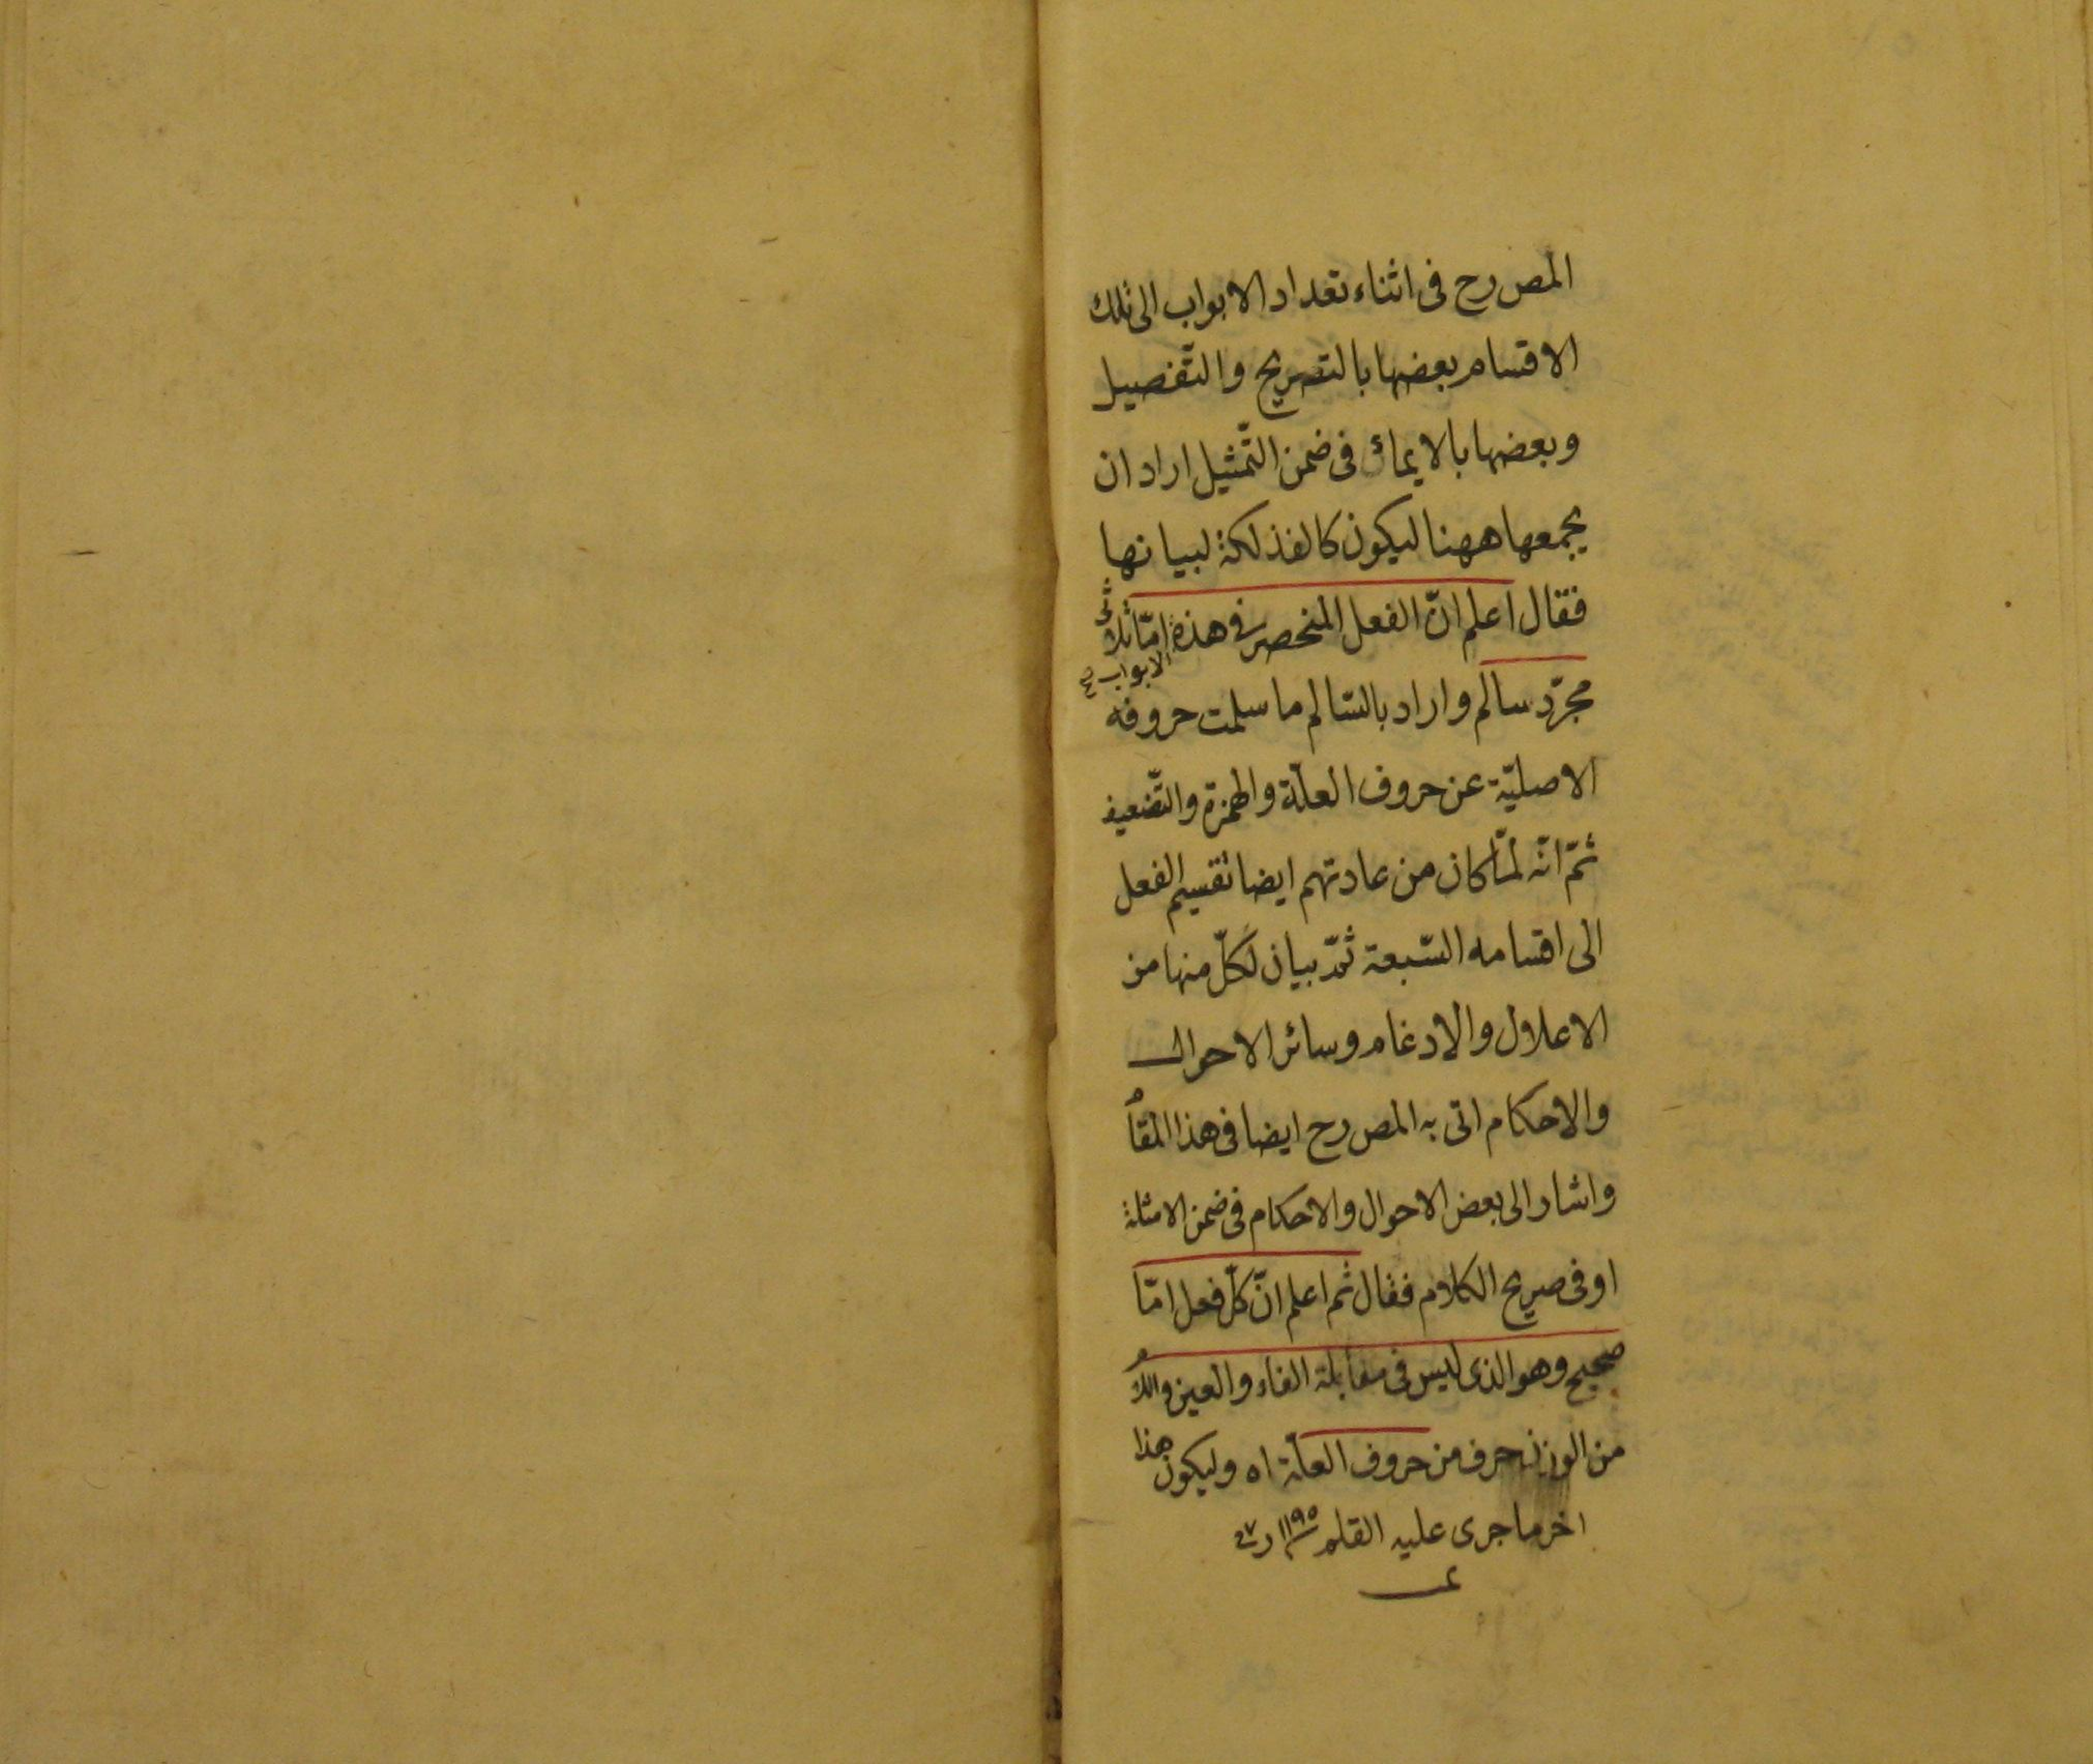 المص رح فى اثناء تعداد الابواب الى تلك
الاقسام بعضها بالتصريح والتّفصيل
وبعضها بالايماء فى ضمن التّمثيل اراد ان
يجمعها ههنا ليكون كالفذلكة لبيانها
فقال اعلم انّ الفعل المنحصر فى هذه امّا ثلاثى
الابواب صح
مجرّد سالم واراد بالسّالم ما سلمت حروفه
الاصليّة عن حروف العلّة والهمزة والتّضعيف
ثمّ انّه لمّا كان من عادتهم ايضا تقسيم الفعل
الى اقسامه السّبعة ثمّ بيان لكلّ منها من
الاعلال والادغام وسائر الاحوال
والاحكام اتى به المص رح ايضا فى هذا المقام
واشار الى بعض الاحوال والاحكام فى ضمن الامثلة
او فى صريح الكلام فقال ثم اعلم انّ كلّ فعل امّا
صحيح وهو الذى ليس فى مقابلة الفاء والعين واللام
من الوزن حرف من حروف العلّة اه وليكون هذا
اخر ما جرى عليه القلم ١١٩٥